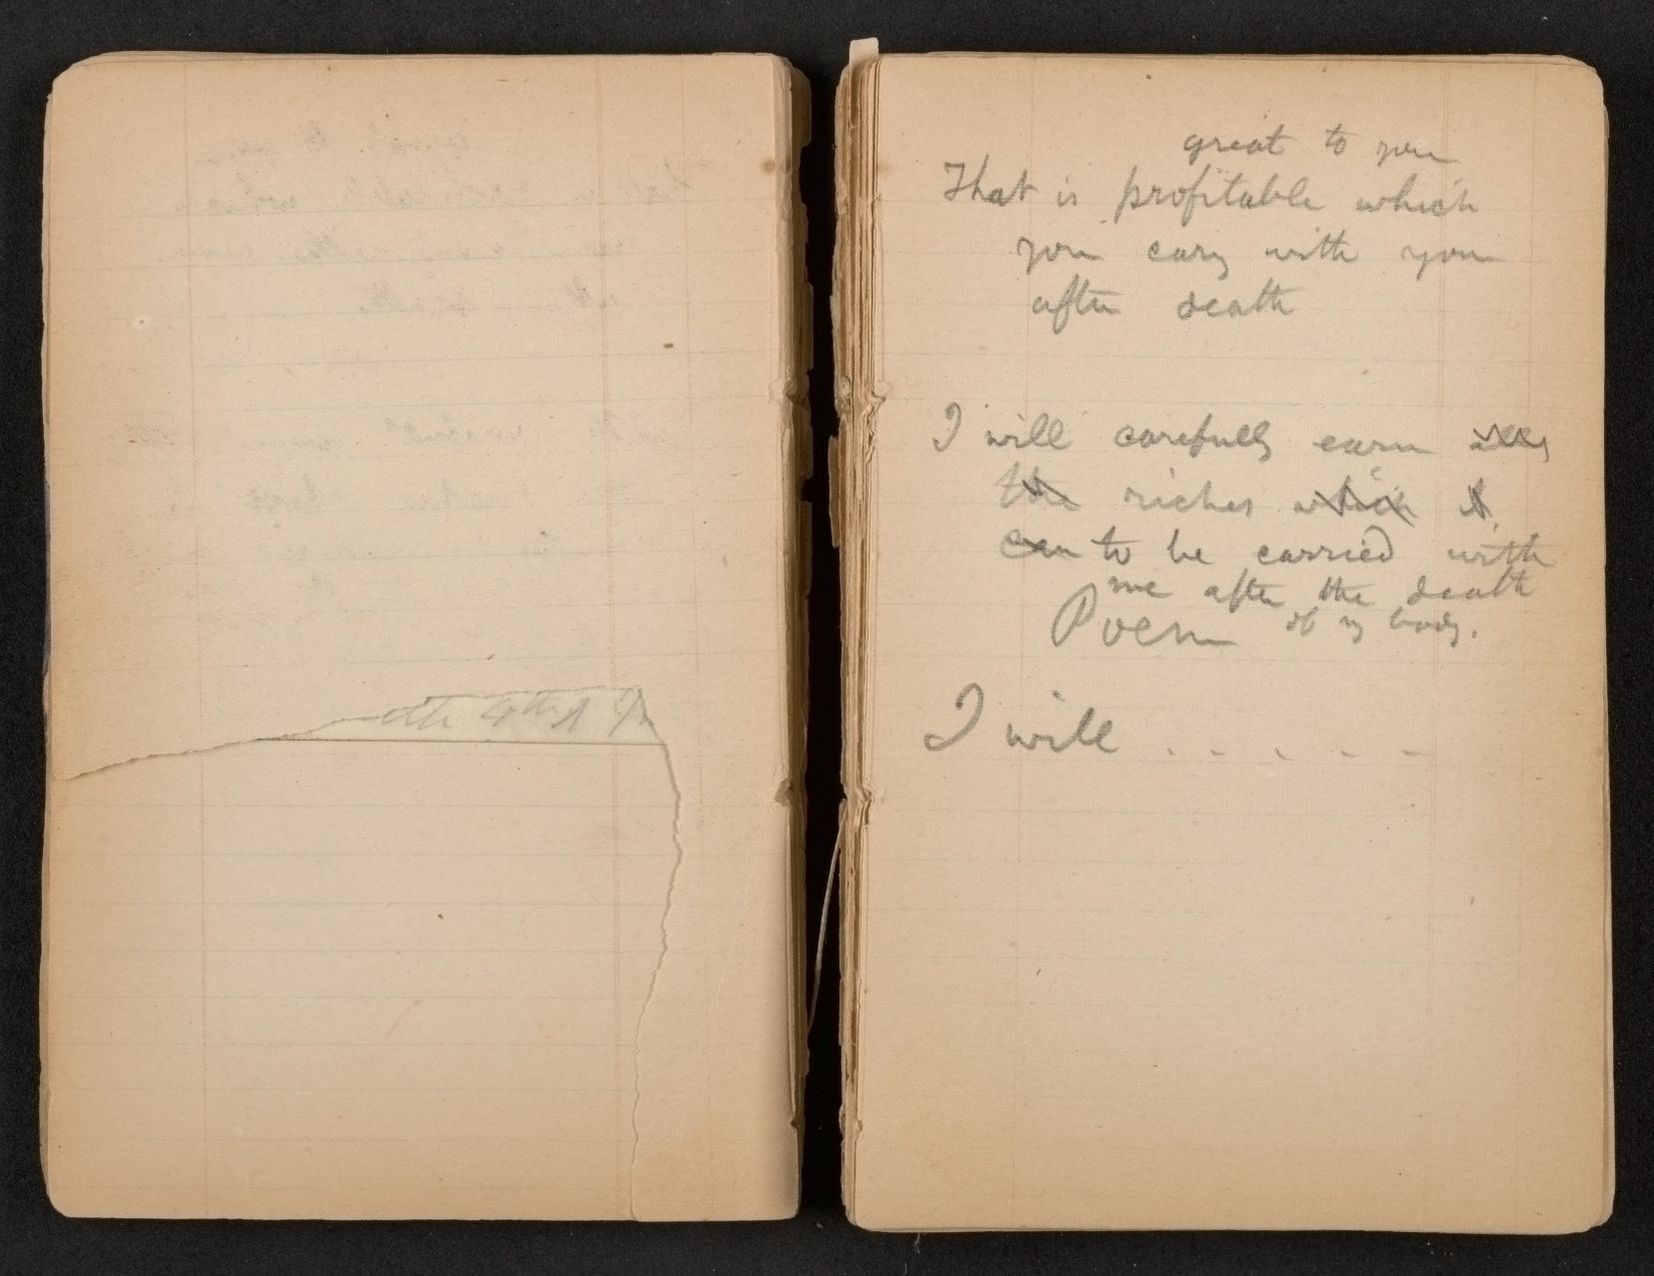 great to you
That is profitable which
you cary with you
after death
I will carefully earn
the riches which I
can to be carried with
me after the death
of my body.
Poem
I will . . . . . -